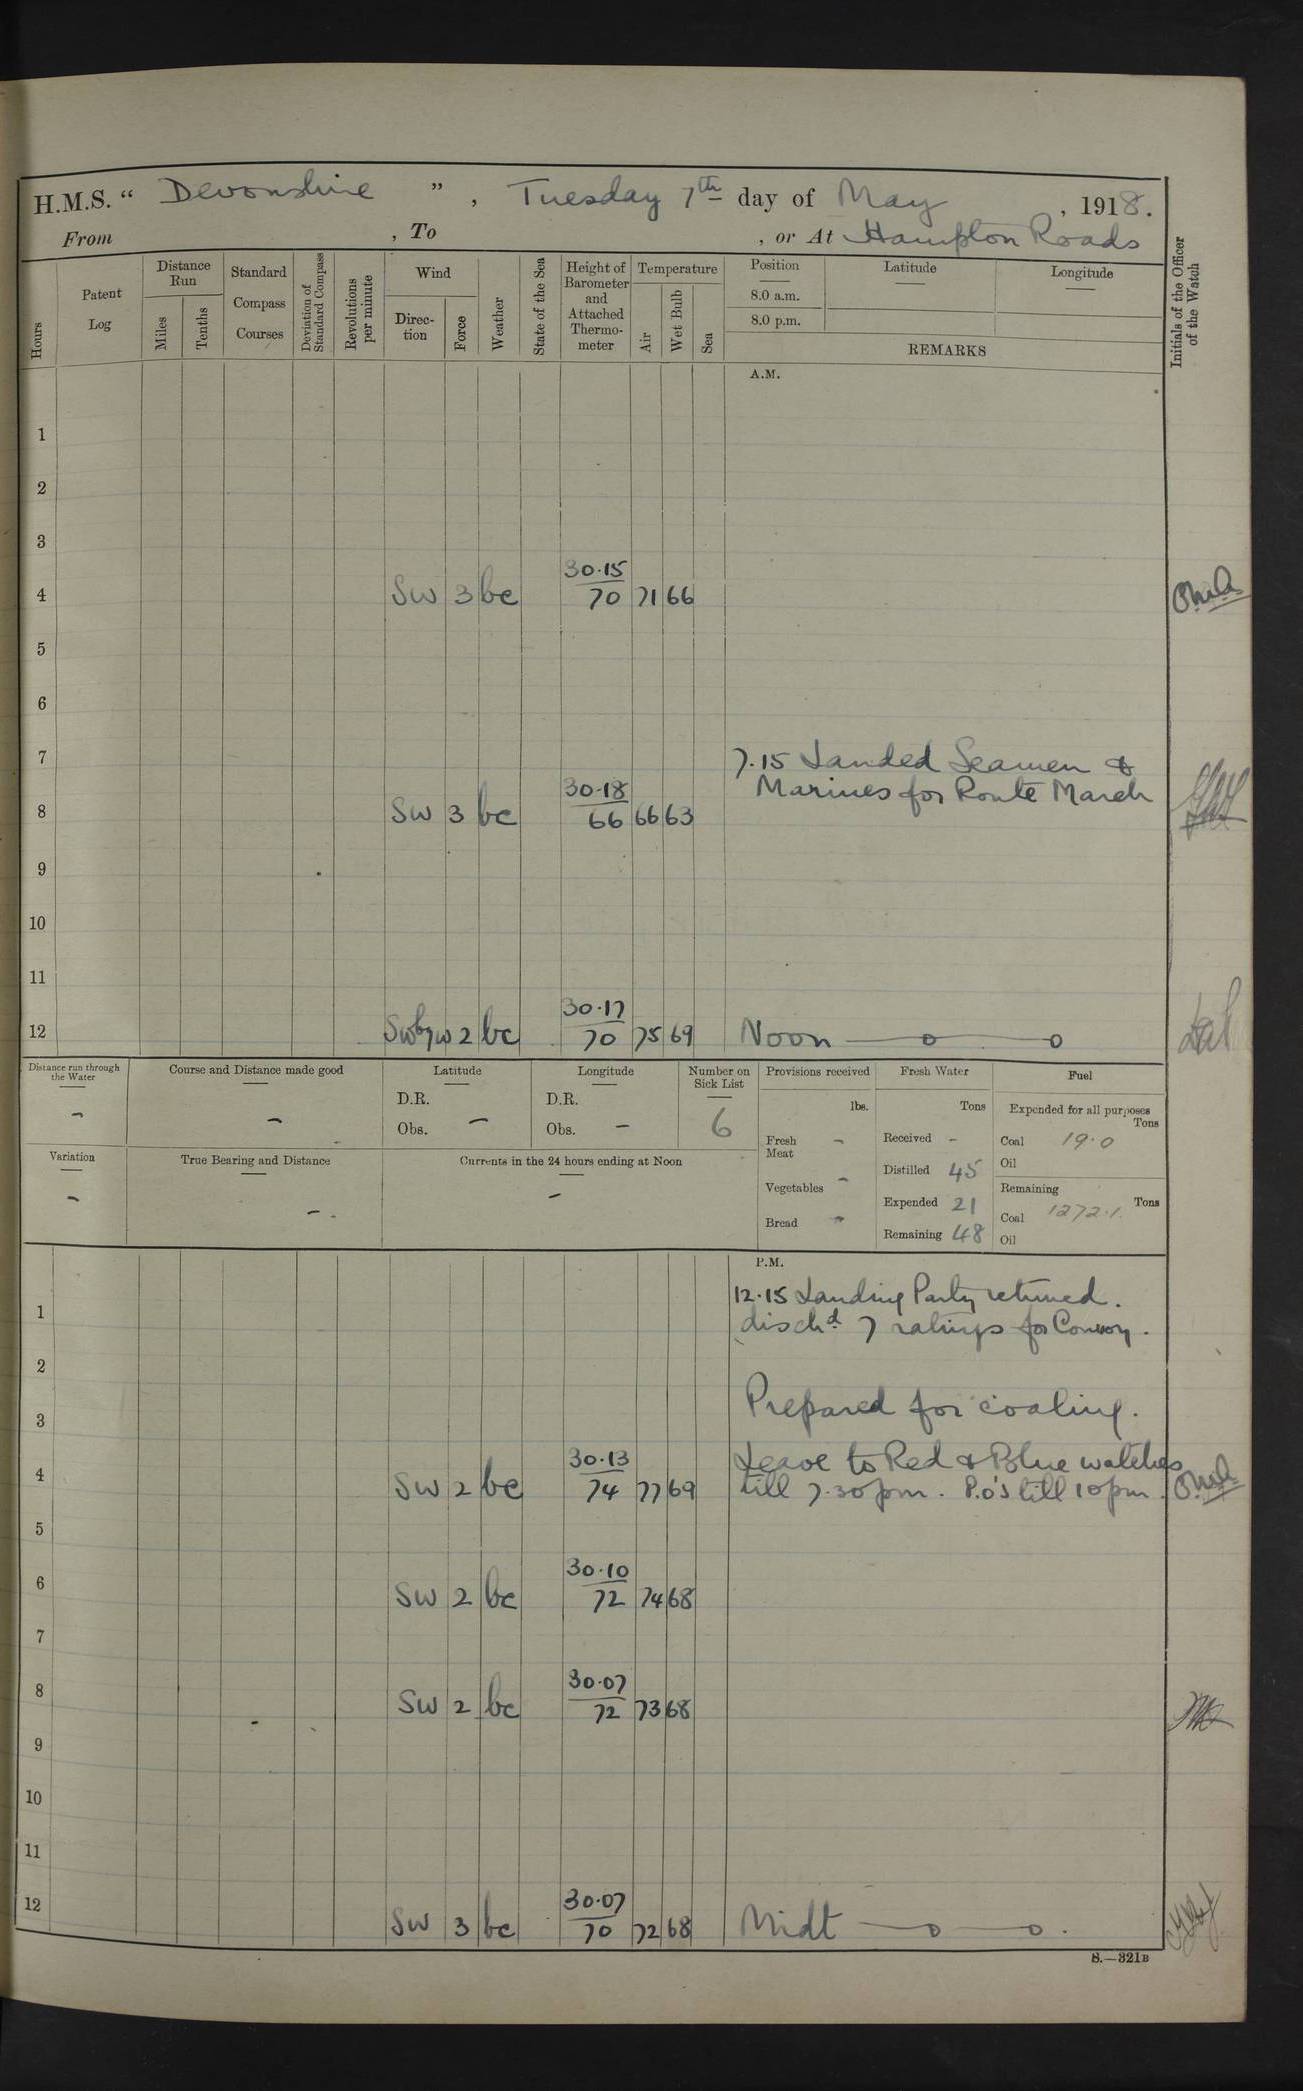 H.M.S. “ Devonshire ” , Tuesday 7th day of May , 1918.
From , To , or At Hampton Roads
Hours
Patent Log
Distance Run
Miles
Tenths
Standard Compass Courses
Deviation of Standard Compass
Revolutions per minute
Wind
Direc-tion
Force
Weather
State of the Sea
Height of Barometer and Attached Thermo-meter
Temperature
Air
Wet Bulb
Sea
Position
8.0 a.m.
8.0 p.m.
Latitude
Longitude
REMARKS
Initials of the Officer of the Watch
A.M.
1
2
3
30.15
4 SW 3 bc 70 71 66
5
6
7 7.15 Landed Seamen &
30.18 Marines for Route March
8 SW 3 bc 66 66 63
9
10
11
30.17
12 SWbyW 2 bc 70 75 69 Noon
Distance run through the Water
-
Course and Distance made good
-
Latitude
D.R.
Obs. -
Longitude
D.R.
Obs. -
Number on Sick List
6
Variation
-
True Bearing and Distance
-
Currents in the 24 hours ending at Noon
-
Provisions received
lbs.
Fresh Meat -
Vegetables -
Bread -
Fresh Water
Tons
Received -
Distilled 45
Expended 21
Remaining 48
Fuel
Expended for all purposes
Tons
Coal 19.0
Oil
Remaining
Tons
Coal 1272.1
Oil
P.M.
12.15 Landing Party returned.
1 dischd 7 ratings for Convoy.
2
3 Prepared for coaling.
30.13 Leave to Red & Blue watches
4 SW 2 bc 74 77 69 till 7.30pm. P.O's till 10pm.
5
30.10
6 SW 2 bc 72 74 68
7
30.07
8 SW 2 bc 72 73 68
9
10
11
30.07
12 SW 3 bc 70 72 68 Midt
S.—321B